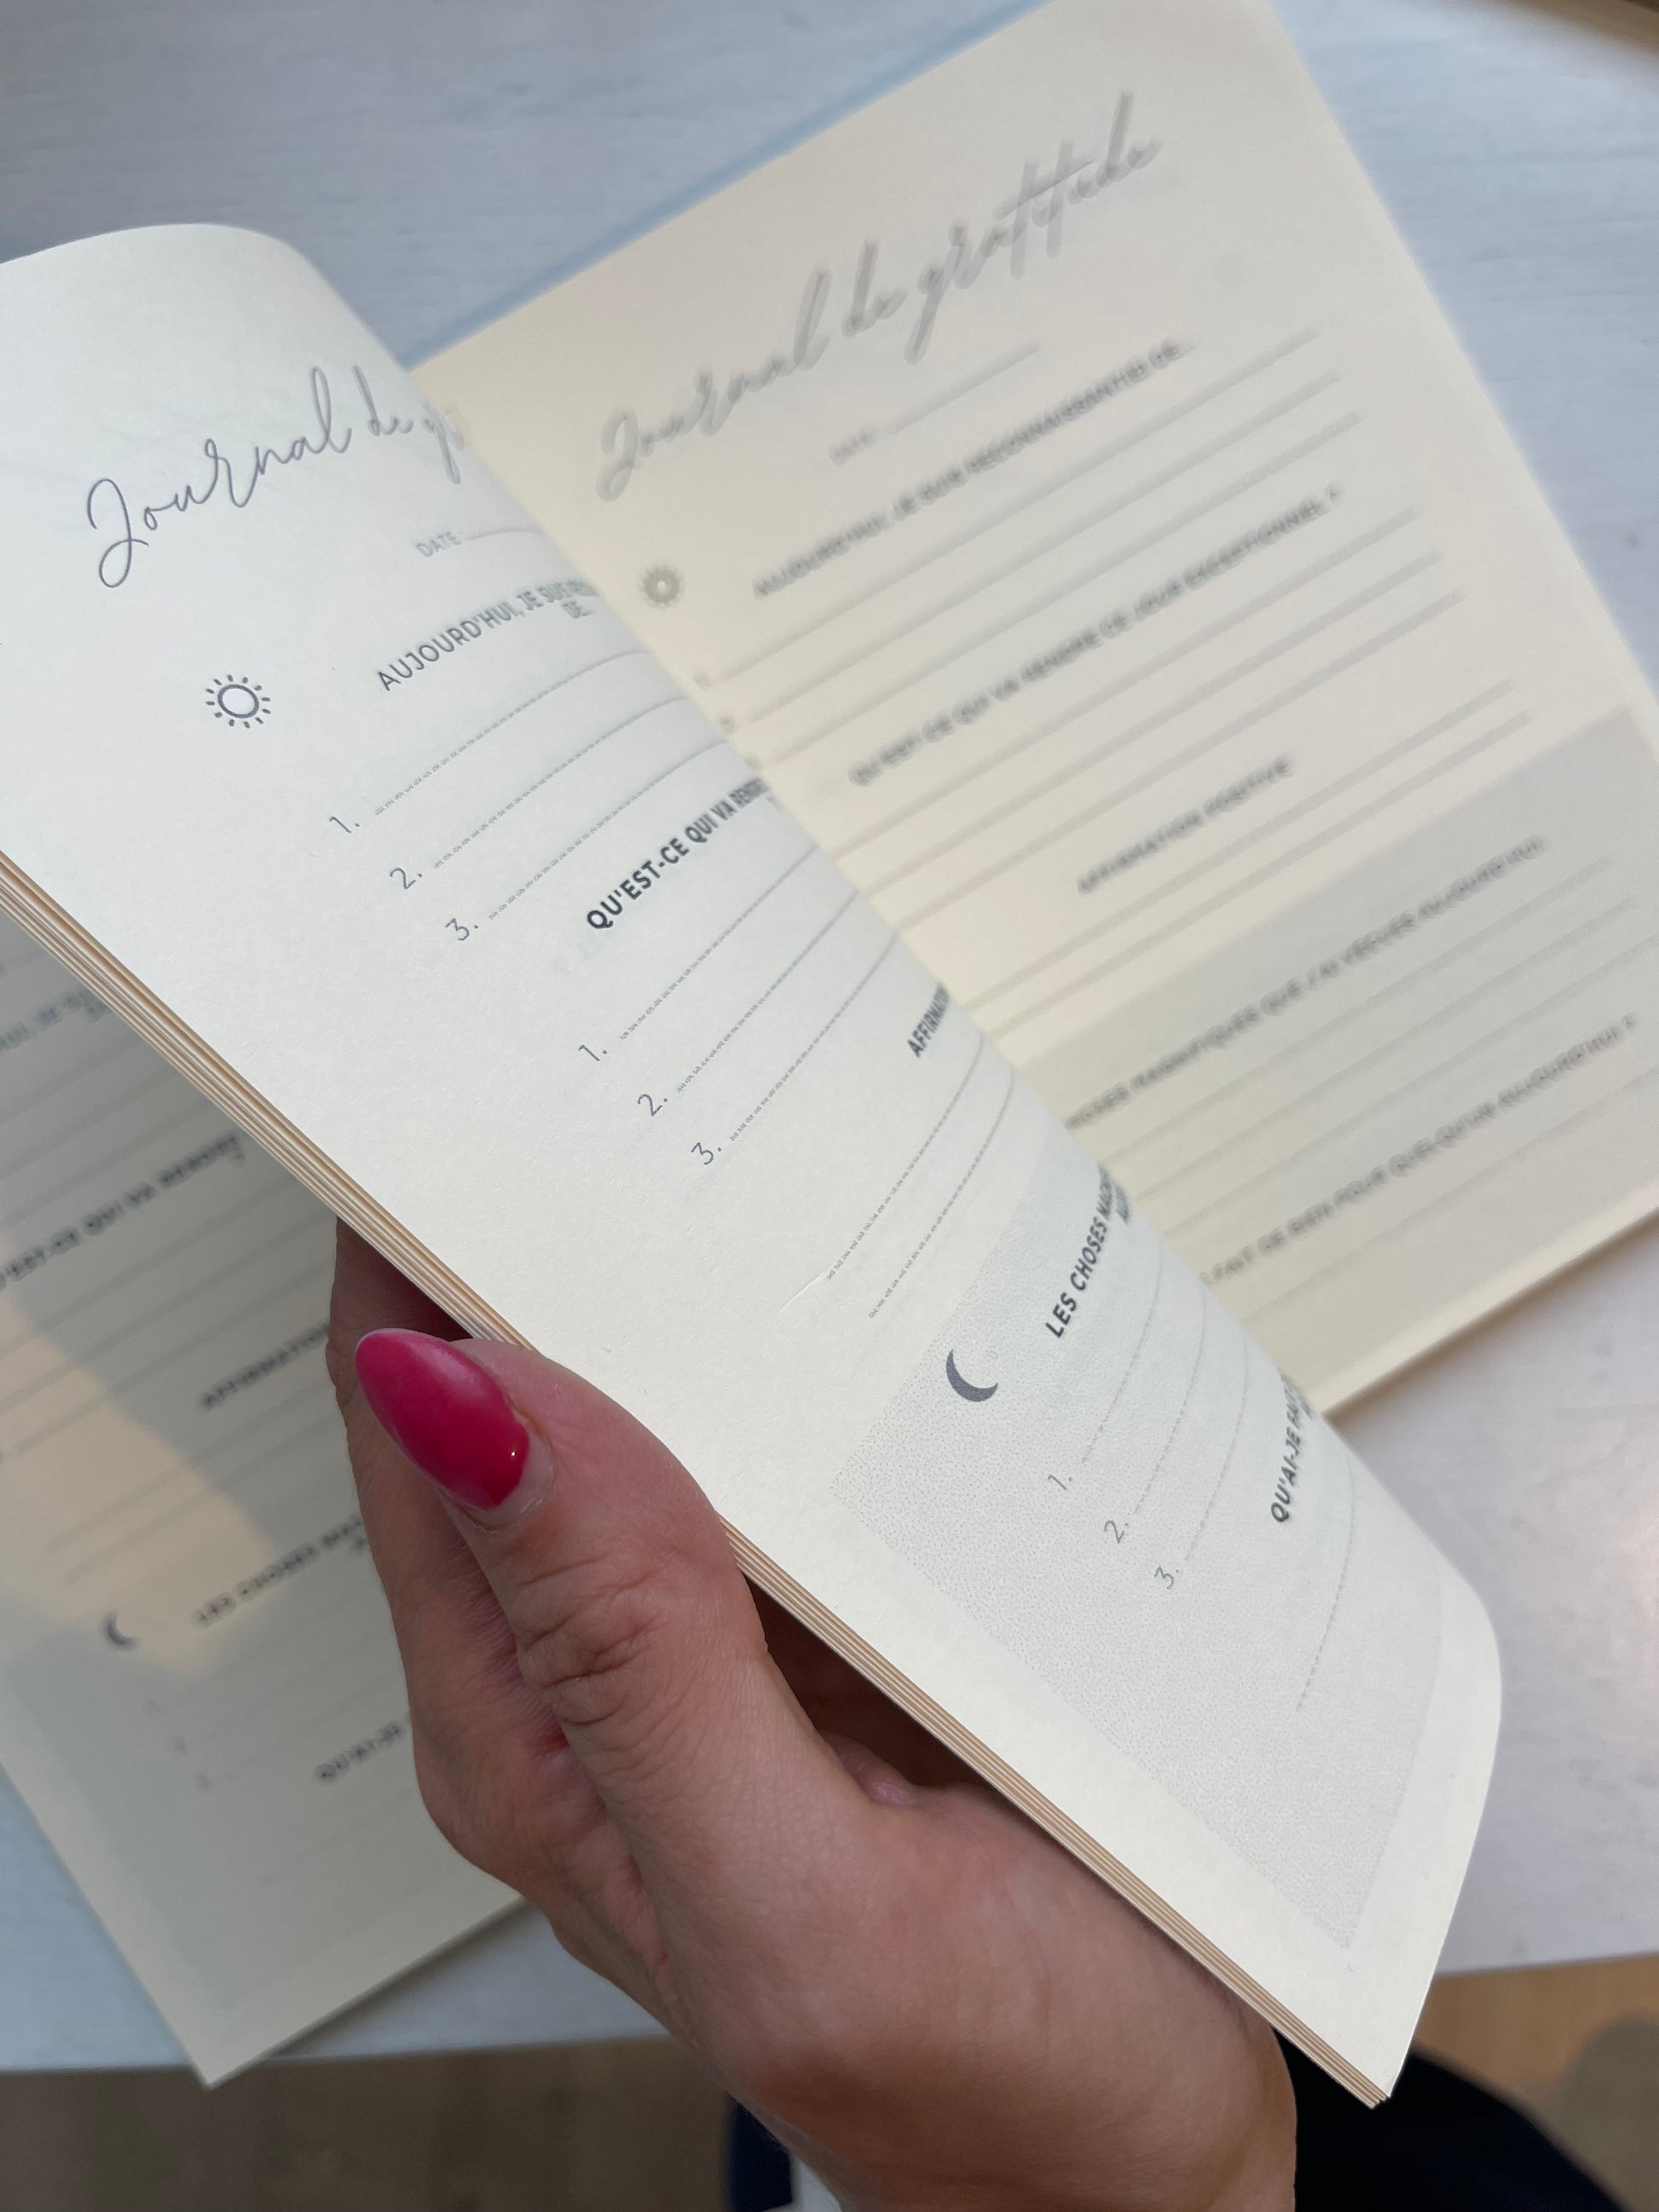 Journal de
DATE:
AUJOURD'HUI, JE SUIS
DE...
1.
2.
3.
QU'EST-CE QUI VA RENDRE
1.
2.
3.
AFFIRMATION
LES CHOSES
1.
2.
3.
QU'AI-JE
Journal de gratitude
DATE:
AUJOURD'HUI, JE SUIS RECONNAISSANT(E) DE...
QU'EST-CE QUI VA RENDRE CE JOUR EXCEPTIONNEL ?
AFFIRMATION POSITIVE
MAGNIFIQUES QUE J'AI VÉCUES AUJOURD'HUI
FAIT DE BIEN POUR QUELQU'UN AUJOURD'HUI ?
QUI VA RENDRE
AFFIRMATION
LES CHOSES
QU'AI-JE